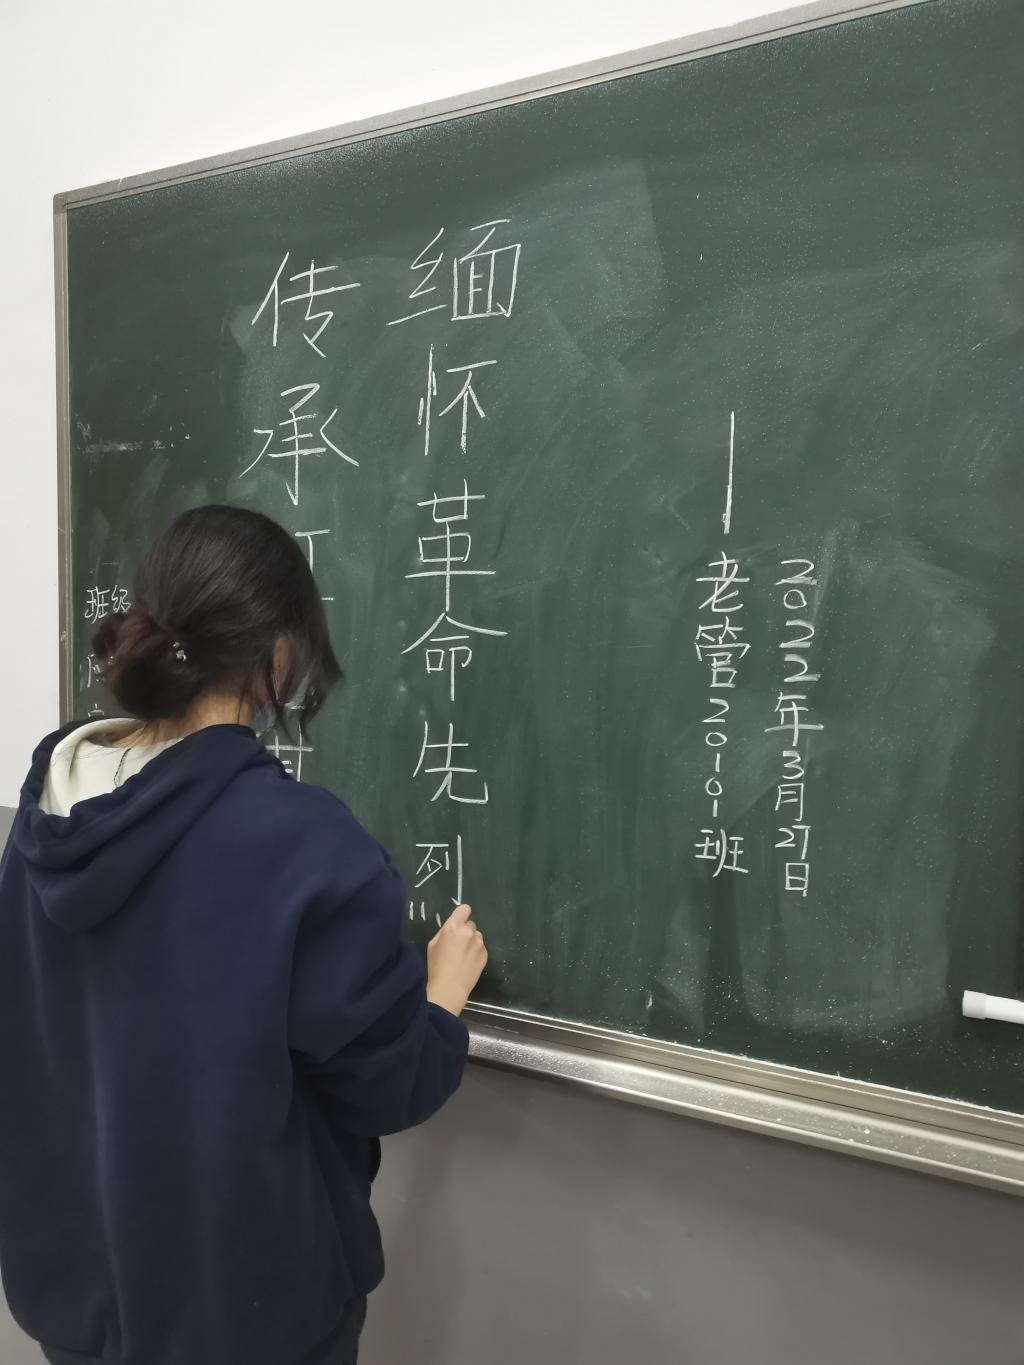 缅怀革命先烈
传承
老管20101班
2022年3月27日
班级